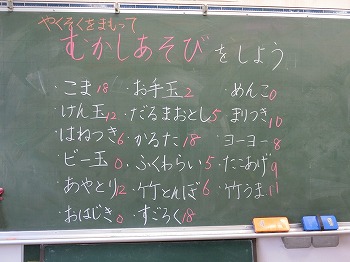 やくそくをまもって
むかしあそびをしよう
・こま18 ・お手玉2 ・めんこ0
・けん玉12 ・だるまおとし5 ・まりつき10
・はねつき6 ・かるた18 ・ヨーヨー8
・ビー玉0 ・ふくわらい5 ・たこあげ9
・あやとり12 ・竹とんぼ6 ・竹うま11
・おはじき0 ・すごろく18